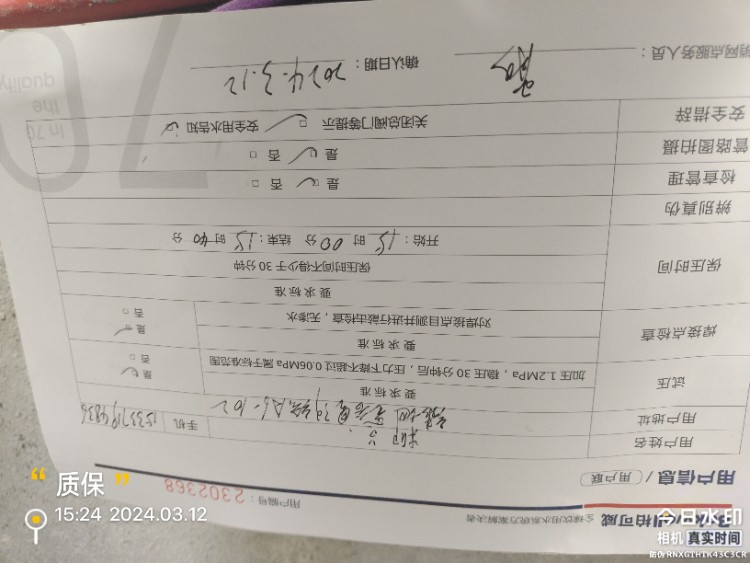 全球饮用水系统方案解决者
用户信息 / 用户联
用户编号：2302368
用户姓名
用户地址
手机
试压
要求标准
加压1.2MPa，稳压30分钟后，压力下降不超过0.06MPa属于标准范围
是 否
焊接点检查
要求标准
对焊接点目测并进行敲击检查，无渗水
是 否
保压时间
要求标准
保压时间不得少于30分钟
开始：15 时 00 分 结束：15 时 40 分
辨别真伪
检查管理
是 否
管路图拍摄
是 否
安全措辞
关闭总阀门等提示 安全用水告知
网点服务人员：
确认日期：2024.3.12
in 70
the
quality
70
质保
15:24 2024.03.12
今日水印
相机 真实时间
防伪 RNXGTHTK43C3CR